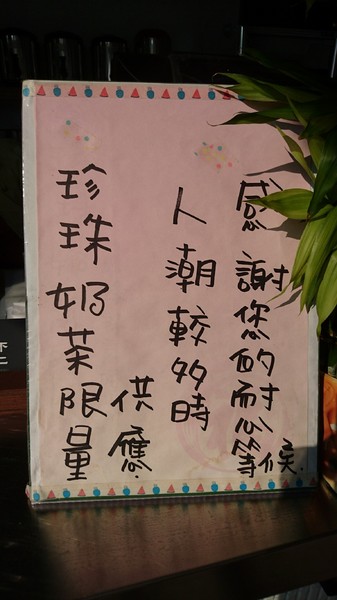 感謝您的耐心等候.
人潮較多時
珍珠奶茶限量
供應